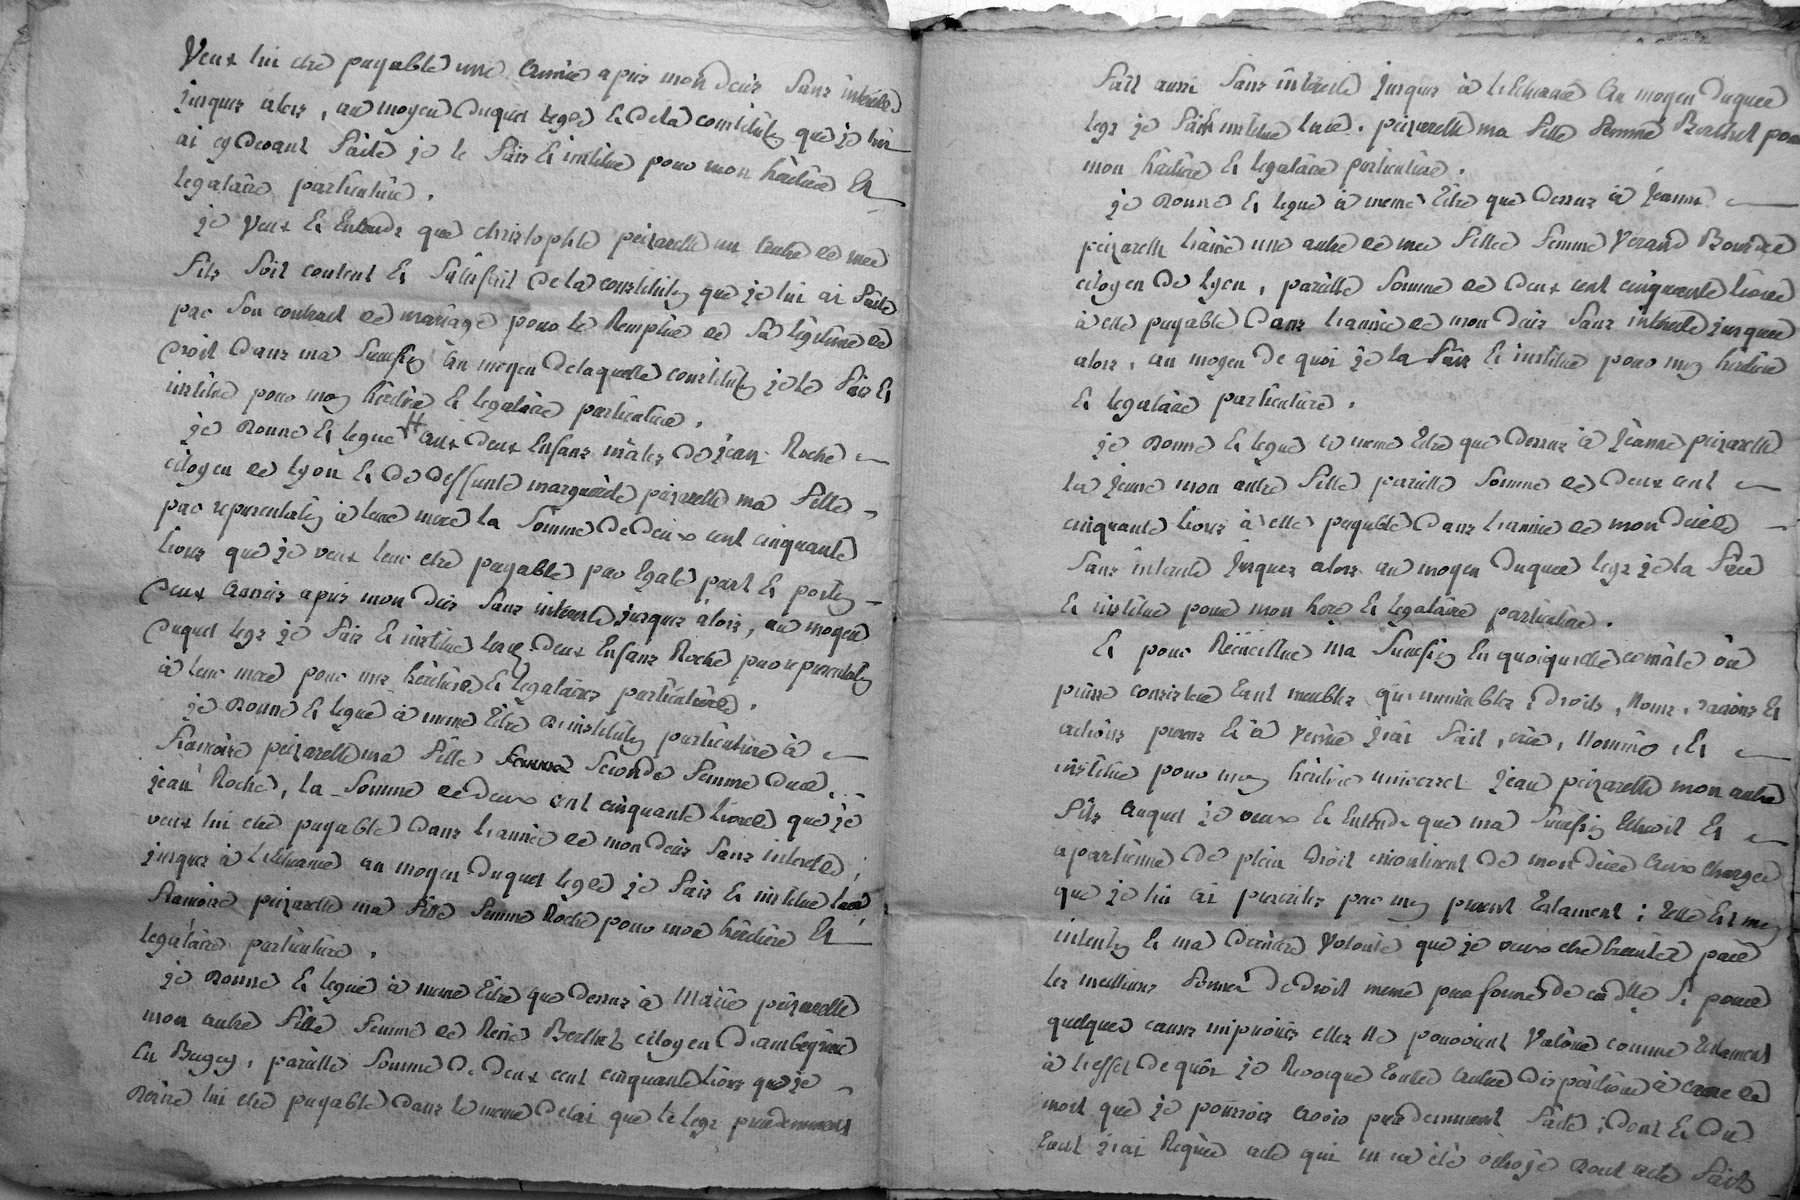 Veux lui etre payable une année apres mon deces sans interets
jusques alors, au moyen duquel legs & de la constituton que je lui
ai cy devant faite je le fais & institue pour mon héritier &
legataire particulière.
je veux & entends que christophle peizarelle un autre de mes
fils soit content & satisfait de la constituton que je lui ai faite
par son contract de mariage pour le remplire de sa légitime de
droit dans ma succession au moyen de laquelle constituton je le fais &
institue pour mon héritier & legataire particulière.
je donne & legue aux deux enfans mâles de jean Roche
citoyen de lyon & de deffunte marguerite peizarelle ma fille
par representaton à leur mere la somme de deux cent cinquante
livres que je veux leur etre payable par egale part & porton
deux années apres mon deces sans interets jusques alors, au moyen
duquel legs je fais & institue lesd deux enfans Roche par representaton
à leur mere pour mes héritiers & legataires particulières.
je donne & legue à meme titre d'instituton particulière à
françoise peizarelle ma fille seconde femme dud.
jean Roche, la somme de deux cent cinquante livres que je
veux lui etre payable dans l'année de mon deces sans interets
jusques à l'echeance au moyen duquel legs je fais & institue lad.
françoise peizarelle ma fille femme Roche pour mon héritière &
legataire particulière.
je donne & legue à meme titre que dessus à Marie peizarelle
mon autre fille femme de René Berthet citoyen d'ambérieu
en Bugey, pareille somme de deux cent cinquante livres que je
désire lui etre payable dans le meme delai que le legs precedemment
fait aussi sans interets jusques à l'echeance au moyen duquel
legs je fais & institue lad. peizarelle ma fille femme Berthet pour
mon héritière & legataire particulière.
je donne & legue à meme titre que dessus à Jeanne
peizarelle l'ainée une autre de mes filles femme Verand
citoyen de lyon, pareille somme de deux cent cinquante livres
à elle payable dans l'année de mon deces sans interets jusques
alors, au moyen de quoi je la fais & institue pour mon héritière
& legataire particulière.
je donne & legue à meme titre que dessus à jéanne peizarelle
la jeune mon autre fille pareille somme de deux cent
cinquante livres à elle payable dans l'année de mon décès
sans interets jusques alors au moyen duquel legs je la fais
& institue pour mon here & legataire particulière.
& pour Recueillir ma succession en quoiquelle consiste ou
puisse consister tant meubles qu'immeubles, droits, noms, raisons &
actions presens & à venir j'ai fait, crée, nommé, &
institue pour mon héritier universel jean peizarelle mon autre
fils auquel je veux & entends que ma succession échoit &
apartienne de plein droit incontinent de mon décès aux charges
que je lui ai prescrites par mon present testament; telle est mon
intenton & ma derniere volonté que je veux etre executée par
les meilleures formes de droit meme par forme de codille si pour
quelques causes impreuves elles ne pouvoient valoire comme testament
à l'effet de quoi je Revoque toutes autres dispositions à cause de
mort que je pourrois avoir precedemment faites; dont & du
tout j'ai Requis acte qui m'a été octroyé dont acte fait